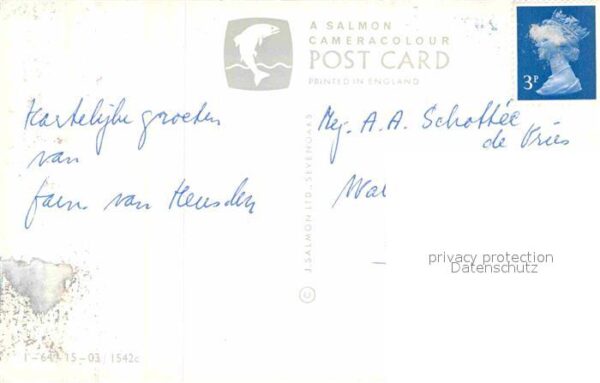 A SALMON
CAMERACOLOUR
POST CARD
PRINTED IN ENGLAND
3P
Hartelijke groeten
van
fam. van Heusden
Mej. A. A. Schottée
de Vries
Wa
© J. SALMON LTD., SEVENOAKS
privacy protection
Datenschutz
1542c